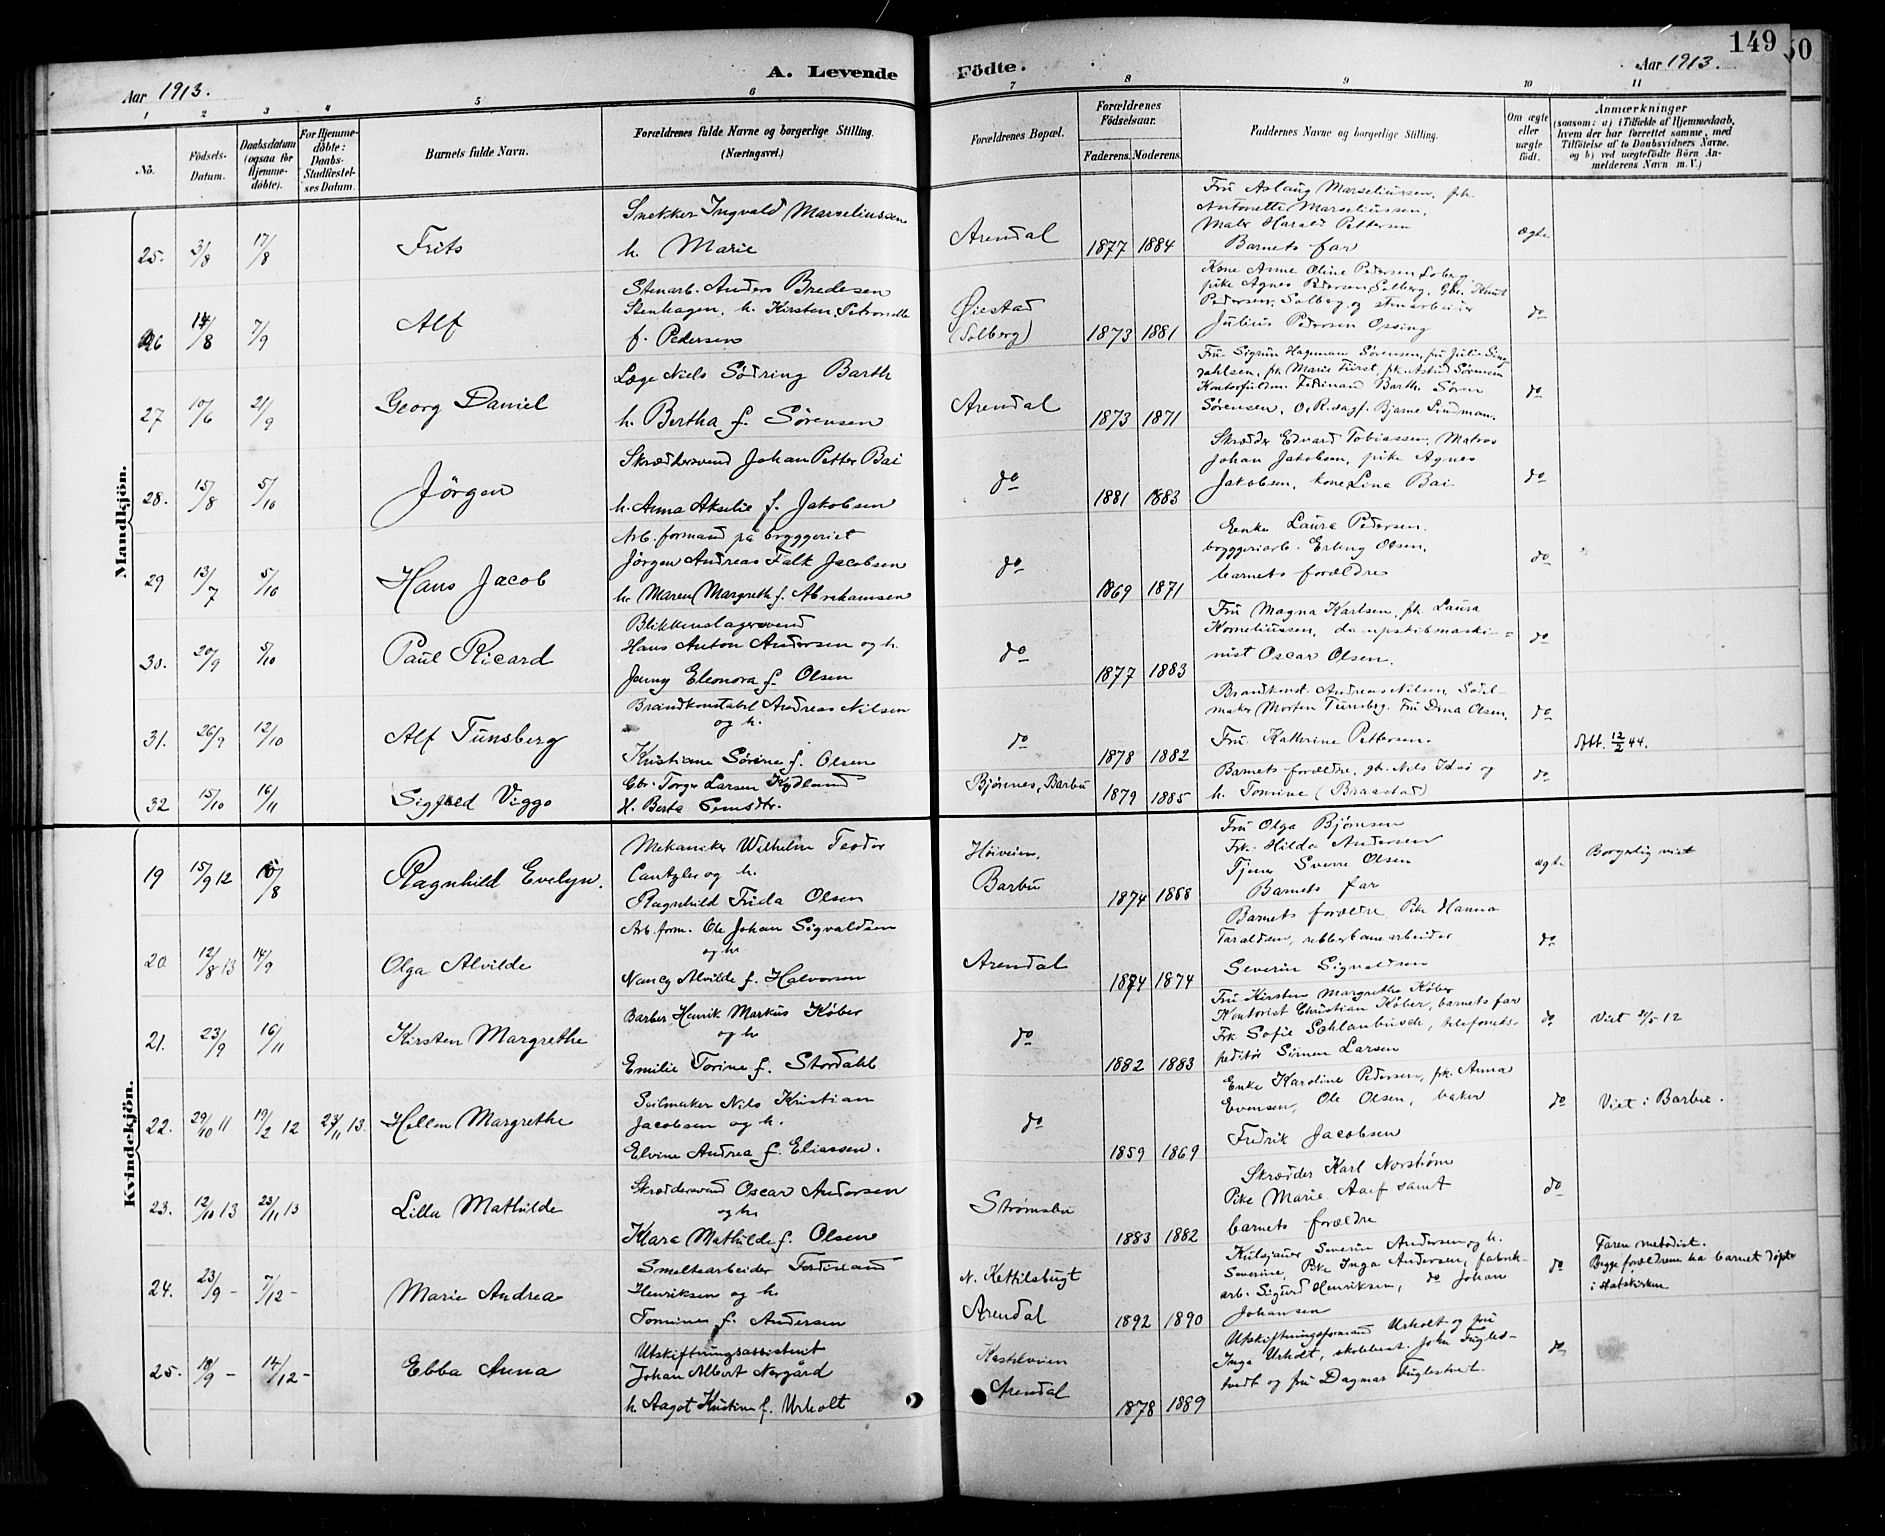 149
50
Aar 1913.
A. Levende Födte.
Aar 1913.
1 2 3 4 5 6 7 8 9 10 11
No.
Födsels-Datum.
Daabsdatum (ogsaa for Hjemme-döbte).
For Hjemme-döbte: Daabs-Stadfæstel-ses Datum.
Barnets fulde Navn.
Forældrenes fulde Navne og borgerlige Stilling. (Næringsvei.)
Forældrenes Bopæl.
Forældrenes Födselsaar.
Faderens. Moderens.
Faddernes Navne og borgerlige Stilling.
Om ægte eller uægte födt.
Anmærkninger
(saasom: a) i Tilfælde af Hjemmedaab, hvem der har forrettet samme, med Tilföielse af to Daabsvidners Navne. og b) ved uægtefödte Börn An-melderens Navn m. V.)
Mandkjön.
25. 3/8 17/8 Frits
Snekker Ingvald Marseliussen
h. Marie
Arendal 1877 1884
Fru Aslaug Marseliussen, frk.
Antonette Marseliussen,
Maler Harald Pettersen
Barnets far
ægte
26 14/8 7/9 Alf
Stenarb. Anders Bredesen
Stenhagen, h. Kirsten Petronelle
f. Pedersen
Øiestad
(Solberg) 1873 1881
Kone Anne Oline Pedersen Solberg,
pike Agnes Pedersen, Solberg, Gbr. Knut
Pedersen, Solberg, og stenarbeider
Julius Pedersen Ossing
do
27 10/6 21/9 Georg Daniel
Læge Niels Södring Barth
h. Bertha f. Sörensen
Arendal 1873 1871
Fru Sigrun Hageman Sörensen, fru Julie Sing-
dahlsen, frk. Marie Fürst, frk. Astrid Sörensen
Kontorfuldm. Ferdinand Barth, Sören
Sörensen, O. R. sagf. Bjarne Lindman.
do
28. 15/8 5/10 Jörgen
Skræddersvend Johan Petter Bai
h. Anna Akselie f. Jakobsen
do 1881 1883
Skrædder Edvard Tobiassen, Matros
Johan Jakobsen, pike Agnes
Jakobsen, kone Lina Bai
do
29 13/7 5/10 Hans Jacob
Arb. formand på bryggeriet
Jörgen Andreas Falk Jacobsen
h. Maren Margreth f. Abrahamsen
do 1869 1871
Enke Laura Pedersen.
bryggeriarb. Erling Olsen,
barnets forældre
do
30. 20/9 5/10 Paul Ricard
Blikkenslagersvend
Hans Anton Andersen og h.
Jenny Eleonora f. Olsen
do 1877 1883
Fru Magna Karlsen, frk. Laura
Korneliussen, dampskibmaski-
nist Oscar Olsen.
do
31. 26/9 12/10 Alf Tunsberg
Brandkonstabel Andreas Nilsen
og h.
Kristiane Sörine f. Olsen
do 1878 1882
Brandkonst. Andreas Nilsen, Sadel-
maker Morten Tunsberg. Fru Dina Olsen,
Fru Kathrine Pettersen.
do
Att. 12/2 44.
32 15/10 16/11 Sigfred Viggo
Gbr. Torger Larsen Kydland
H. Berta Semsdtr.
Bjønnes, Barbu 1879 1885
Barnets forældre, gbr. Nils Idsö og
h. Tomine (Braastad)
do
Kvindekjön.
19 15/9 12 10/8 Ragnhild Evelyn.
Mekaniker Wilhelm Teodor
Cantzler og h.
Ragnhild Frida Olsen
Höiveien,
Barbu 1874 1888
Fru Olga Bjørnsen
Frk. Hilda Andersen
Tjener Sverre Olsen
Barnets far
ægte
Borgerlig viet
20 12/8 13 14/9 Olga Alvilde
Arb. form. Ole Johan Sigvaldsen
og h.
Nancy Alvilde f. Halvorsen
Arendal 1874 1874
Barnets forældre, Pike Hanna
Taraldsen, rebberbanearbeider
Severin Sigvaldsen
do
21. 23/9 16/11 Kirsten Margrethe
Barber Henrik Markus Köber
og h
Emilie Torine f. Stordahl
do 1882 1883
Fru Kirsten Margrethe Köber
Kontorist Christian Köber, barnets far
Frk Sofie Schlanbusch, telefoneks-
peditör Simen Larsen
do
Viet 2/5-12
22. 29/10 11 19/2 12 23/11 13. Hellen Margrethe
Seilmaker Nils Kristian
Jacobsen og h.
Elvine Andrea f. Eliassen.
do 1859 1869
Enke Karoline Pedersen, frk. Anna
Evensen, Ole Olsen, baker
Fredrik Jacobsen
do
Viet i Barbu.
23. 12/10 13 23/11 13 Lilla Mathilde
Skræddersvend Oscar Andersen
og h.
Klara Mathilde f. Olsen
Strømsbu 1883 1882
Skrædder Karl Norstrøm
Pike Marie Aaef samt
barnets forældre
do
24. 23/9 - 7/12 - Marie Andrea
Smeltearbeider Ferdinand
Henriksen og h.
Tomine f. Andersen
N. Kettilsbugt
Arendal 1892 1890
Kulsjauer Severin Andersen og h.
Severine, Pike Inga Andersen, fabrik-
arb. Sigurd Henriksen, do Johan
Johansen
do
Faren metodist.
Begge forældrene ha barnet döpt
i statskirken
25. 18/9 - 14/12 - Ebba Anna
Utskiftningsassistent
Johan Albert Nergård
h. Aagot Kristine f. Urholt
Kastelveien
Arendal 1878 1889
Utskiftningsformand Urholt og fru
Inga Urholt, skolebest. John Fugles-
tvedt og fru Dagmar Fuglestvedt.
do